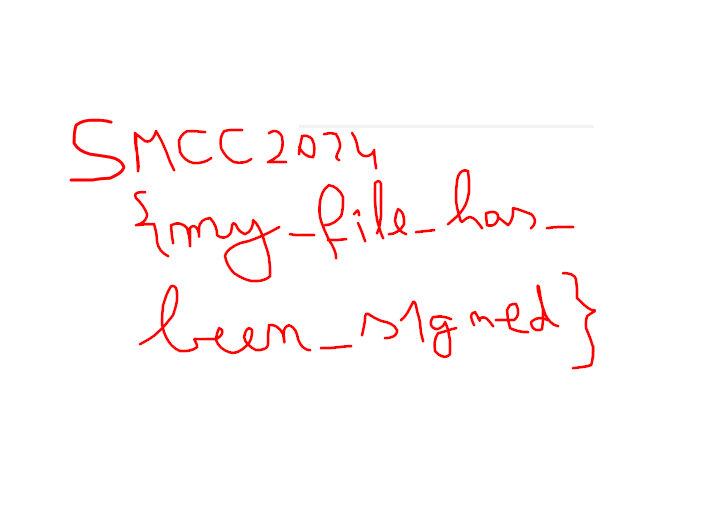 SMCC2024
{my_file_has_
been_s1gned}